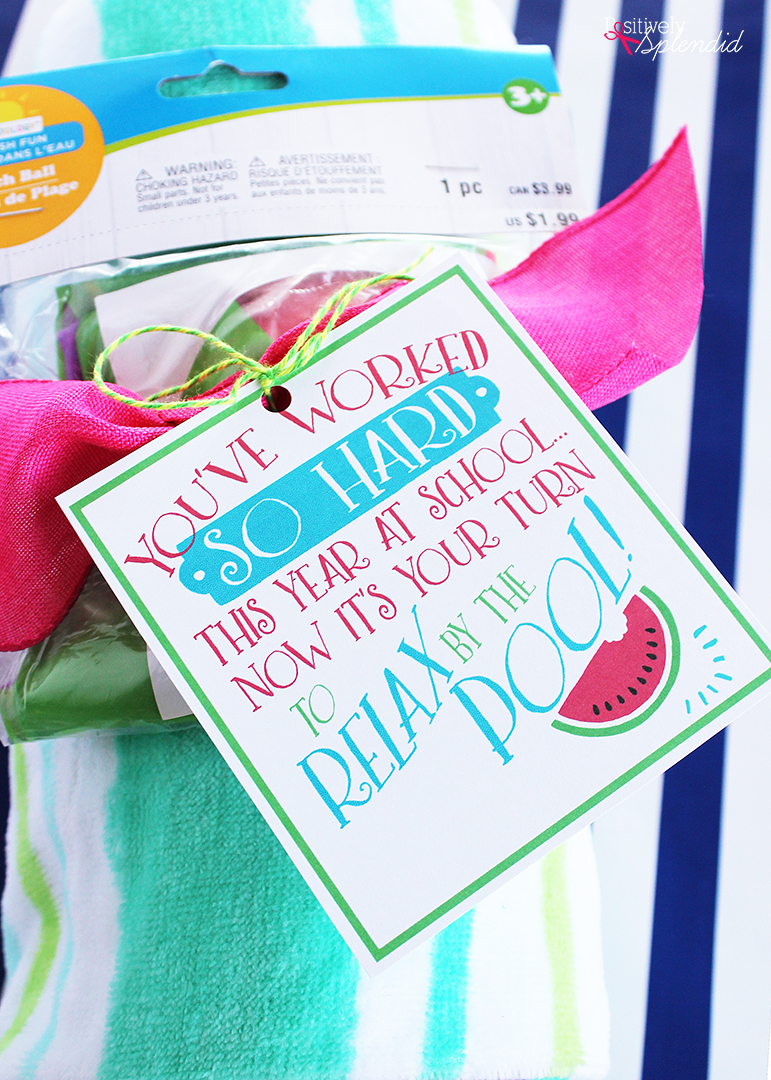 Positively
Splendid
3+
SH FUN
DANS L'EAU
ch Ball
de Plage
WARNING:
CHOKING HAZARD
Small parts. Not for
children under 3 years.
AVERTISSEMENT
RISQUE D'ÉTOUFFEMENT
Petites pièces. Ne convient pas
aux enfants de moins de 3 ans.
1 pc
CAN $3.99
US $1.99
YOU'VE WORKED
SO HARD
THIS YEAR AT SCHOOL...
NOW IT'S YOUR TURN
TO RELAX BY THE POOL!